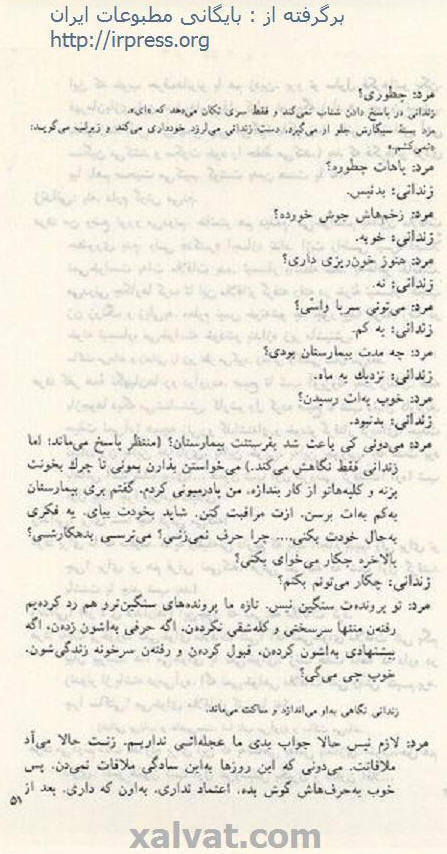 برگرفته از : بایگانی مطبوعات ایران
http://irpress.org
مرد: چطوری؟
زندانی در پاسخ دادن شتاب نمی‌کند و فقط سری تکان می‌دهد که «ای».
مرد بستهٔ سیگارش جلو او می‌گیرد. دست زندانی می‌لرزد خودداری می‌کند و زیرلب می‌گوید:
«نمی‌کشم.»
مرد: پاهات چطوره؟
زندانی: بدنیس.
مرد: زخم‌هاش جوش خورده؟
زندانی: خوبه.
مرد: هنوز خون‌ریزی داری؟
زندانی: نه.
مرد: می‌تونی سرپا واسّی؟
زندانی: یه کم.
مرد: چه مدت بیمارستان بودی؟
زندانی: نزدیك یه ماه.
مرد: خوب به‌ات رسیدن؟
زندانی: بدنبود.
مرد: می‌دونی کی باعث شد بفرستنت بیمارستان؟ (منتظر پاسخ می‌ماند؛ اما
زندانی فقط نگاهش می‌کند.) می‌خواستن بذارن بمونی تا چرك بخونت
بزنه و کلیه‌هاتو از کار بندازه. من پادرمیونی کردم. گفتم بری بیمارستان
یه‌کم به‌ات برسن. ازت مراقبت کنن. شاید بخودت بیای. یه فکری
به‌حال خودت بکنی.... چرا حرف نمی‌زنی؟ می‌ترسی بدهکارشی؟
بالاخره چکار می‌خوای بکنی؟
زندانی: چکار می‌تونم بکنم؟
مرد: تو پرونده‌ت سنگین نیس. تازه ما پرونده‌های سنگین‌ترو هم رد کرده‌یم
رفته‌ن منتها سرسختی و کله‌شقی نکرده‌ن. اگه حرفی به‌اشون زدن، اگه
پیشنهادی به‌اشون کردن، قبول کردن و رفته‌ن سرخونه زندگی‌شون.
خوب چی می‌گی؟
زندانی نگاهی به‌او می‌اندازد و ساکت می‌ماند.
مرد: لازم نیس حالا جواب بدی ما عجله‌ئی نداریم. زنت حالا می‌آد
ملاقاتت. می‌دونی که این روزها به‌این سادگی ملاقات نمی‌دن. پس
خوب به‌حرف‌هاش گوش بده. اعتماد نداری. به‌اون که داری. بعد از
۵۱
xalvat.com